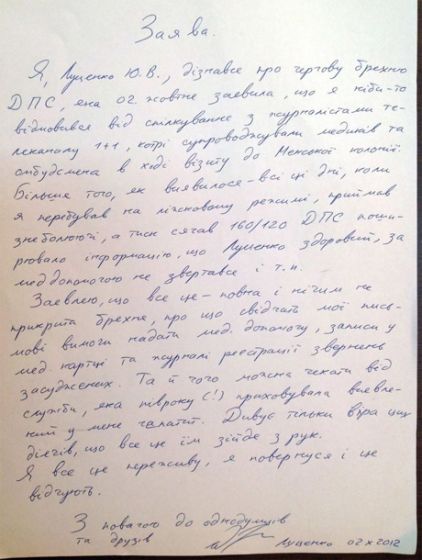 Заява.
Я, Луценко Ю.В., дізнався про чергову брехню
ДПС, яка 02 жовтня заявила, що я ніби-то
відмовився від спілкування з журналістами те-
леканалу 1+1, котрі супроводжували медиків та
омбудсмена в ході візиту до Менської колонії.
Більше того, як виявилося - всі ці дні, коли
я перебував на ліжковому режимі, приймав
знеболюючі, а тиск сягав 160/120 ДПС поши-
рювало інформацію, що Луценко здоровий, за
меддопомогою не звертався і т.п.
Заявляю, що все це - повна і нічим не
прикрита брехня, про що свідчать мої пись-
мові вимоги надати мед. допомогу, записи у
мед. картці та журналі реєстрації звернень
засуджених. Та й чого можна чекати від
служби, яка півроку (!) приховувала виявле-
ний у мене гепатит. Дивує тільки віра цих
діячів, що все це їм зійде з рук.
Я все це переживу, я повернуся і це
відчують.
З повагою до однодумців
та друзів
Луценко 02 X 2012